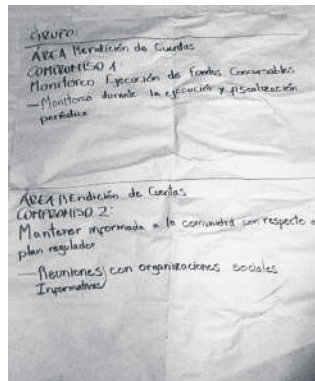 GRUPO:
ÁREA Rendición de Cuentas
COMPROMISO 1
Monitoreo Ejecución de Fondos Concursables
— Monitoreo durante la ejecución y fiscalización
periódica
ÁREA REndición de Cuentas
COMPROMISO 2:
Mantener informada a la comunidad con respecto a
plan regulador
— Reuniones con organizaciones sociales
Informativas